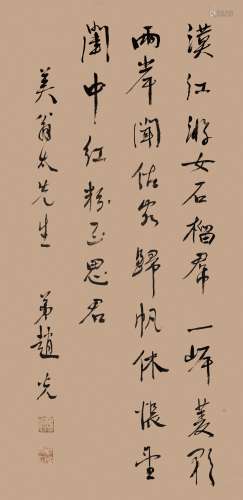 漢江游女石榴帬一菱歌
兩岸聞估客歸帆休悵望
閨中紅粉正思君
美翁太先生 弟趙光